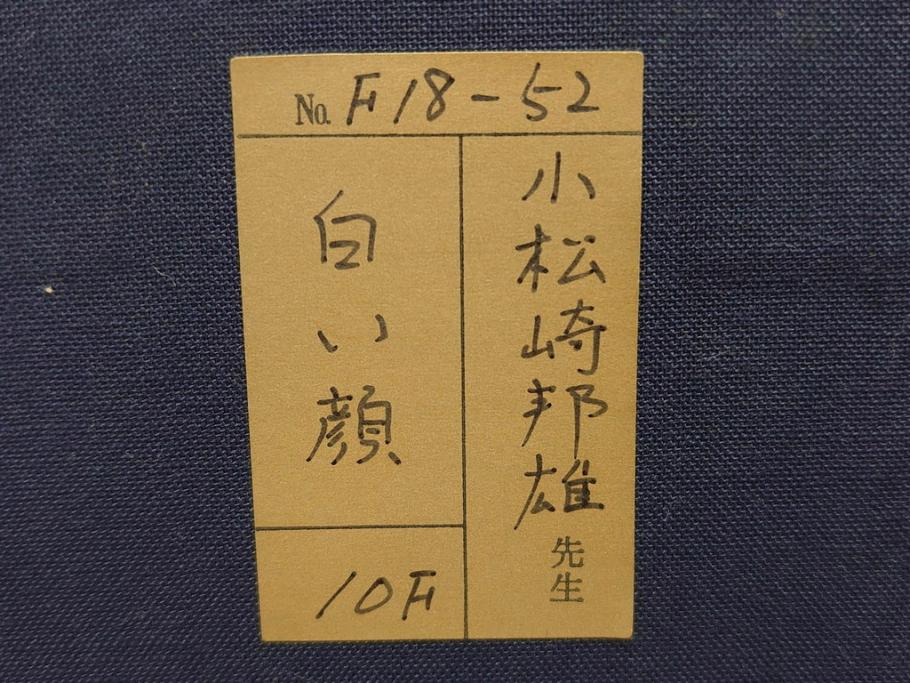 No. F18-52
小松崎邦雄先生
白い顔
10F